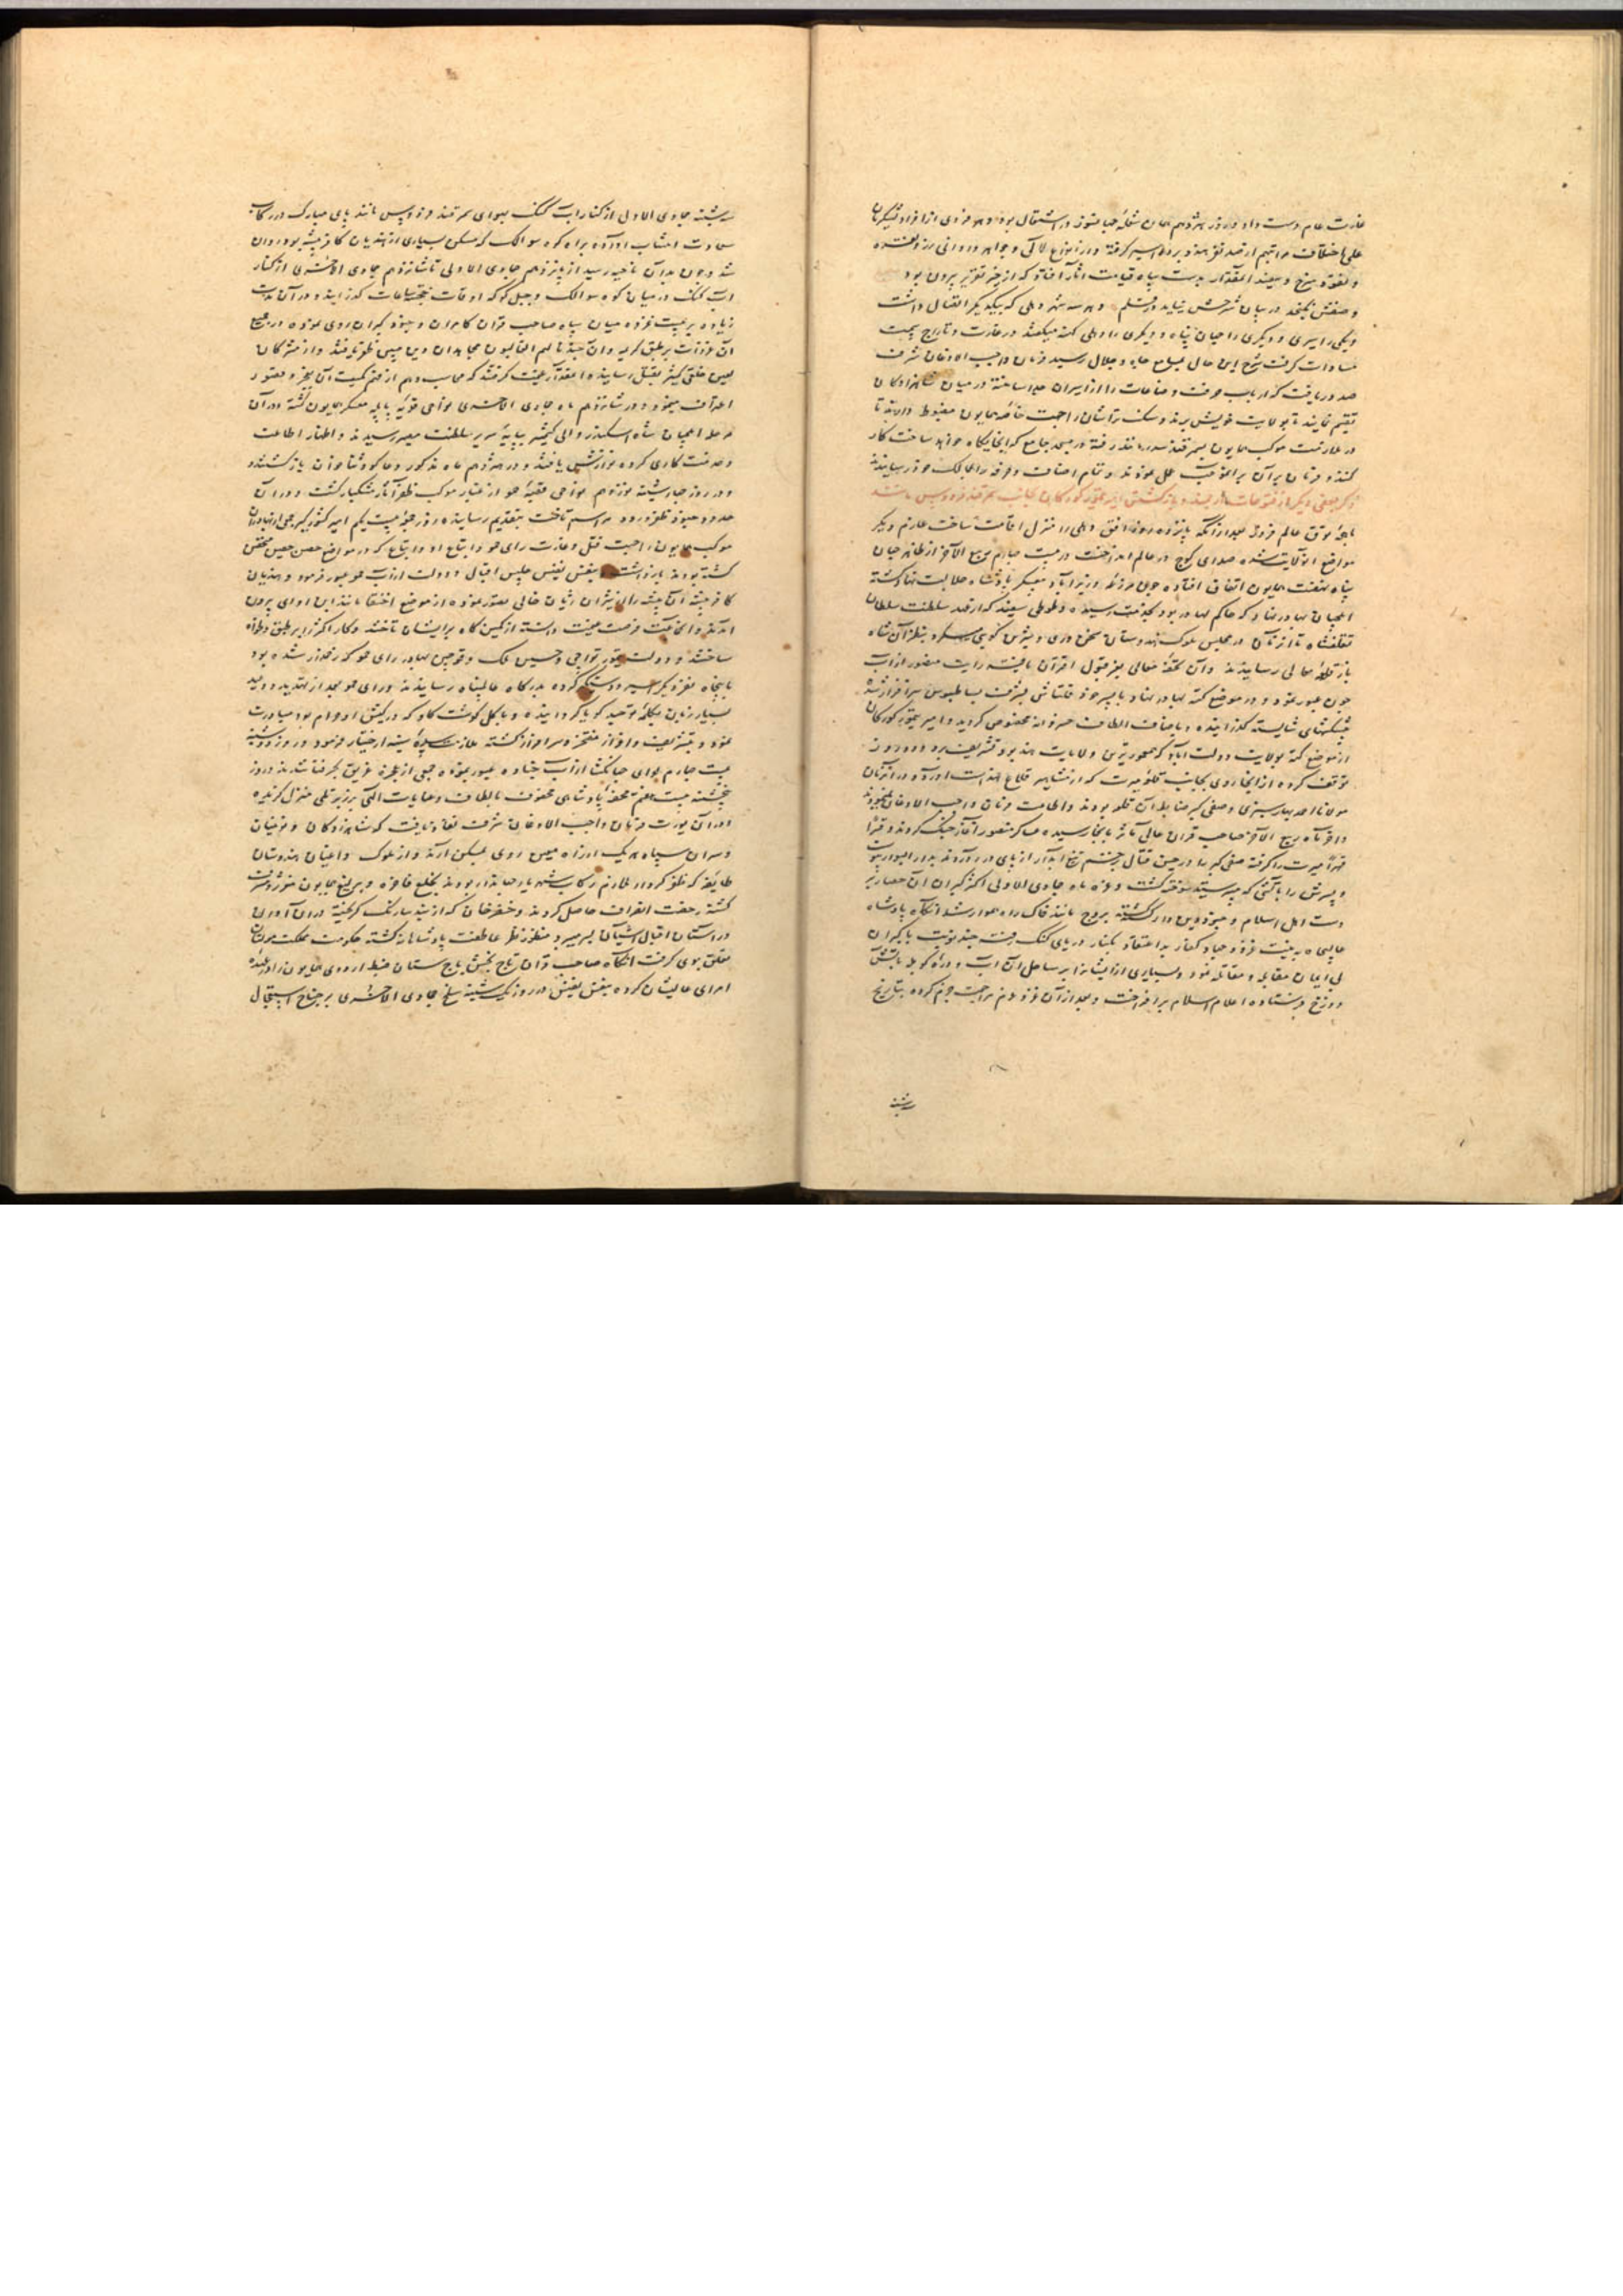 غارت عام دست داد و روز هژدهم همان شعله جهانسوز در اشتعال بود و هر فردی از افراد لشکریان
علی اختلاف مراتبهم از صد نفر هندو برده اسیر گرفته و از انواع لآلی و جواهر و اوانی زر و نقره
و نقود سرخ و سفید آنمقدار بدست سپاه قیامت آثار افتاد که از حیز تقریر بیرون بود
و صفتش نگنجد در بیان شرحش نیاید در قلم و هر سه شهر دهلی که بیکدیگر اتصال داشت
و یکی را سیری و دیگری را جهان پناه و دیگری را دهلی کهنه میگفتند در غارت و تاراج سمت
مساوات گرفت شرح این حال بمسامع جاه و جلال رسید فرمان واجب الاذعان شرف
صدور یافت که ارباب حرفت و صناعات را از اسیران جدا ساخته در میان شاهزادگان
تقسیم نمایند تا بولایت خویش برند و سنگ تراشان را جهت خاصه همایون مضبوط دارند تا
در ملازمت موکب همایون بسمرقند مانند رفته در مسجد جامع که اینجایگاه خواهد ساخت کار
کنند و فرمان بران برانموجب عمل نمودند و تمام اصناف و حرفه را بممالک خود رسانیدند
ذکر بعضی دیگر از فتوحات دیار هند و بازگشتن امیر تیمور کورکان بجانب سمرقند فردوس مانند
ماهچه توق عالم فروز بعد از آنکه پانزده روز افق دهلی را منزل اقامت ساخت عازم دیگر
مواضع آنولایت شده صدای کوچ در عالم انداخت و در بیست چهارم ربیع الآخر از ظاهر جهان
پناه نهضت همایون اتفاق افتاده چون مرزبوم وزیراباد معسکر پادشاه جلالت نهاد گشته
ایلچیان بهادر نهار که حاکم کوتله بود بخدمت رسیده دو طوطی سفید که از عهد سلطنت سلطان
تغلقشاه تا آنزمان در مجلس ملوک هندوستان سخن وری و شیرین گویی میکردند بنظر آن شاه
باز قلعه معالی رسانیدند و آن تحفه معالی بعز قبول اقتران یافته رایت منصور از آب
جون عبور نمود و در موضع کته بهادر نهار با پسر خود قلتاش بشرف بساط بوس سرافراز شد
پیشکشهای شایسته گذرانیده و باصناف الطاف خسروانه مخصوص گردید و امیر تیمور کورکان
از موضع کته بولایت دولت اباد که معمور ترین ولایات هند بود تشریف برد و دو روز
توقف کرده از انجا روی بجانب قلعه میرت که از مشاهیر قلاع هند است آورد و در آنزمان
مولانا احمد تهانیسری و صفی گبر ضابط آن قلعه بودند و اطاعت فرمان واجب الاذعان ننمودند
و اخر ماه ربیع الآخر صاحب قران عالی مآثر بانجا رسیده عساکر منصور آغاز جنگ کردند و قهرا
قهرا میرت را گرفته صفی گبر را در حین قتال بزخم تیغ آبدار از پای در آوردند بدار البوار پیوست
و پسرش را باتشی که میپرستید سوخته گشت و غره ماه جمادی الاولی اکثر گبران آن حصار بر
دست اهل اسلام و جنود دین دار کشته بروج مانند خاک راه هموار شد انگاه پادشاه
عالیجاه بنیت غزو و جهاد کفار بد اعتقاد بکنار دریای کنک رفت چند نوبت با گبران
بی ایمان مقابله و مقاتله نمود و بسیاری از ایشانرا بر ساحل آن آب و دره کوپله باتش
دوزخ فرستاده اعلام اسلام برافراخت و بعد از آن غزو عزم مراجعت جزم کرده بتاریخ
سه شنبه
سه شنبه جمادی الاول از کنار آب کنک بهوای سمرقند فردوس مانند پای مبارک در رکاب
سعادت انتساب آورده براه کوه سوالک که مسکن بسیاری از هندیان کافر پیشه بود روان
شد و چون بدان ناحیه رسید از پانزدهم جمادی الاولی تا شانزدهم جمادی الاخری از کنار
آب کنک در میان کوه سوالک و جبل کوکه اوقات خجسته ساعات گذرانید و در آن مدت
زیاده بر بیست غزوه میان سپاه صاحب قران کامران و جنود گبران روی نموده در جمیع
آن غزوات بر طبق کریمه و ان جندنا لهم الغالبون مجاهدان دین مبین ظفر یافتند و از مشرکان
لعین خلق کثیر بقتل رسانیده آنمقدار غنیمت گرفتند که محاسب وهم از فهم کمیت آن بعجز و قصور
اعتراف مینمود و در شانزدهم ماه جمادی الاخری نواحی قریه بایله معسکر همایون گشته در آن
مرحله ایلچیان شاه اسکندر والی کشمیر بپایه سریر سلطنت مصیر رسیدند و اظهار اطاعت
و خدمت کاری کرده نوازش یافتند و در هژدهم ماه مذکور دعاگو و ثناخوان بازگشتند
و در روز چهارشنبه نوزدهم نواحی قصبه جمو از غبار موکب ظفر آثار مشکبار گشت و در آن
حدود جنود ظفر ورود مراسم تاخت بتقدیم رسانیده روز جمعه بیست یکم امیر کشورگیر جمعی از بهادران
موکب همایون را جهت قتل و غارت رای جمو و اتباع او و اتباع که در مواضع حصین متحصن
گشته بودند بازداشت بنفس نفیس جلیس اقبال و دولت از آب جمو عبور فرمود و هندیان
کافر پیشه آن بیشه را از شیران ژیان خالی تصور نموده از موضع اختفا مانند ابن اوی بیرون
آمدند و آنجماعت فرصت غنیمت دانسته از کمین گاه بر ایشان تاختند و کار اکثر را بر طبق دلخواه
ساختند و دولت تیمور تواجی و حسین ملک و قوچین بهادر رای جمو که زخمدار شده بود
با پنجاه نفر دیگر اسیر و دستگیر کرده بدرگاه عالمپناه رسانیدند و رای جمو بعد از تهدید و وعید
بسیار زبان بکلمه توحید گویا گردانیده و با کل گوشت گاو که در کیش او حرام بود مبادرت
نمود و بتشریف و اعزاز مفتخر و سرافراز گشته ملازمت سده سنیه اختیار فرمود و روز دوشنبه
بیست چهارم لوای جهانگشا از آب جناوه عبور نموده جمعی از عجزه غریق بحر فنا شدند و روز
پنجشنبه بیست هفتم محفه پادشاهی محفوف بالطاف و عنایات الهی بر زبر تلی منزل گزیده
و در آن یورت فرمان واجب الاذعان شرف نفاذ یافت که شاهزادگان و نوئینان
و سران سپاه هر یک از راه معین روی بمسکن آرند و از ملوک و اعیان هندوستان
طایفه که ظفر کردار ملازم رکاب شهریار جهاندار بودند بخلع فاخره و یرلیغ همایون مفتخر و مشرف
گشته رخصت انصراف حاصل کردند و خضر خان که از بند سارنک گریخته در آن آوان
در آستان اقبال آشیان بسر میبرد منظور نظر عاطفت پادشاهانه گشته حکومت مملکت مولتان
متعلق بوی گرفت انگاه صاحب قران تاج بخش باج ستان ضبط اردوی همایون را در عهده
امرای عالیشان کرده بنفس نفیس در روز یکشنبه سلخ جمادی الاخری بر جناح استعجال